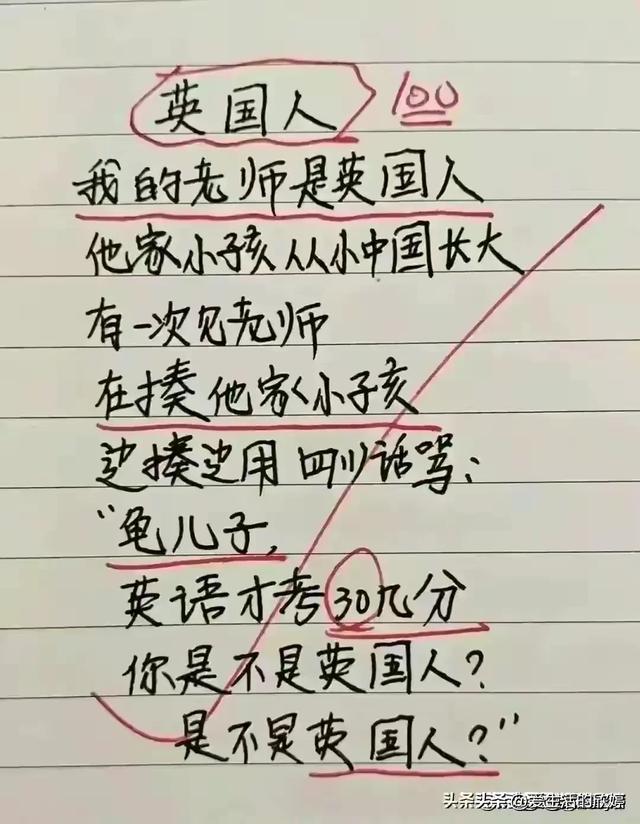 英国人 100
我的老师是英国人
他家小孩从小中国长大
有一次见老师
在揍他家小孩
边揍边用四川话骂：
“龟儿子，
英语才考30几分
你是不是英国人？
是不是英国人？”
头条 @爱生活的欣嬉